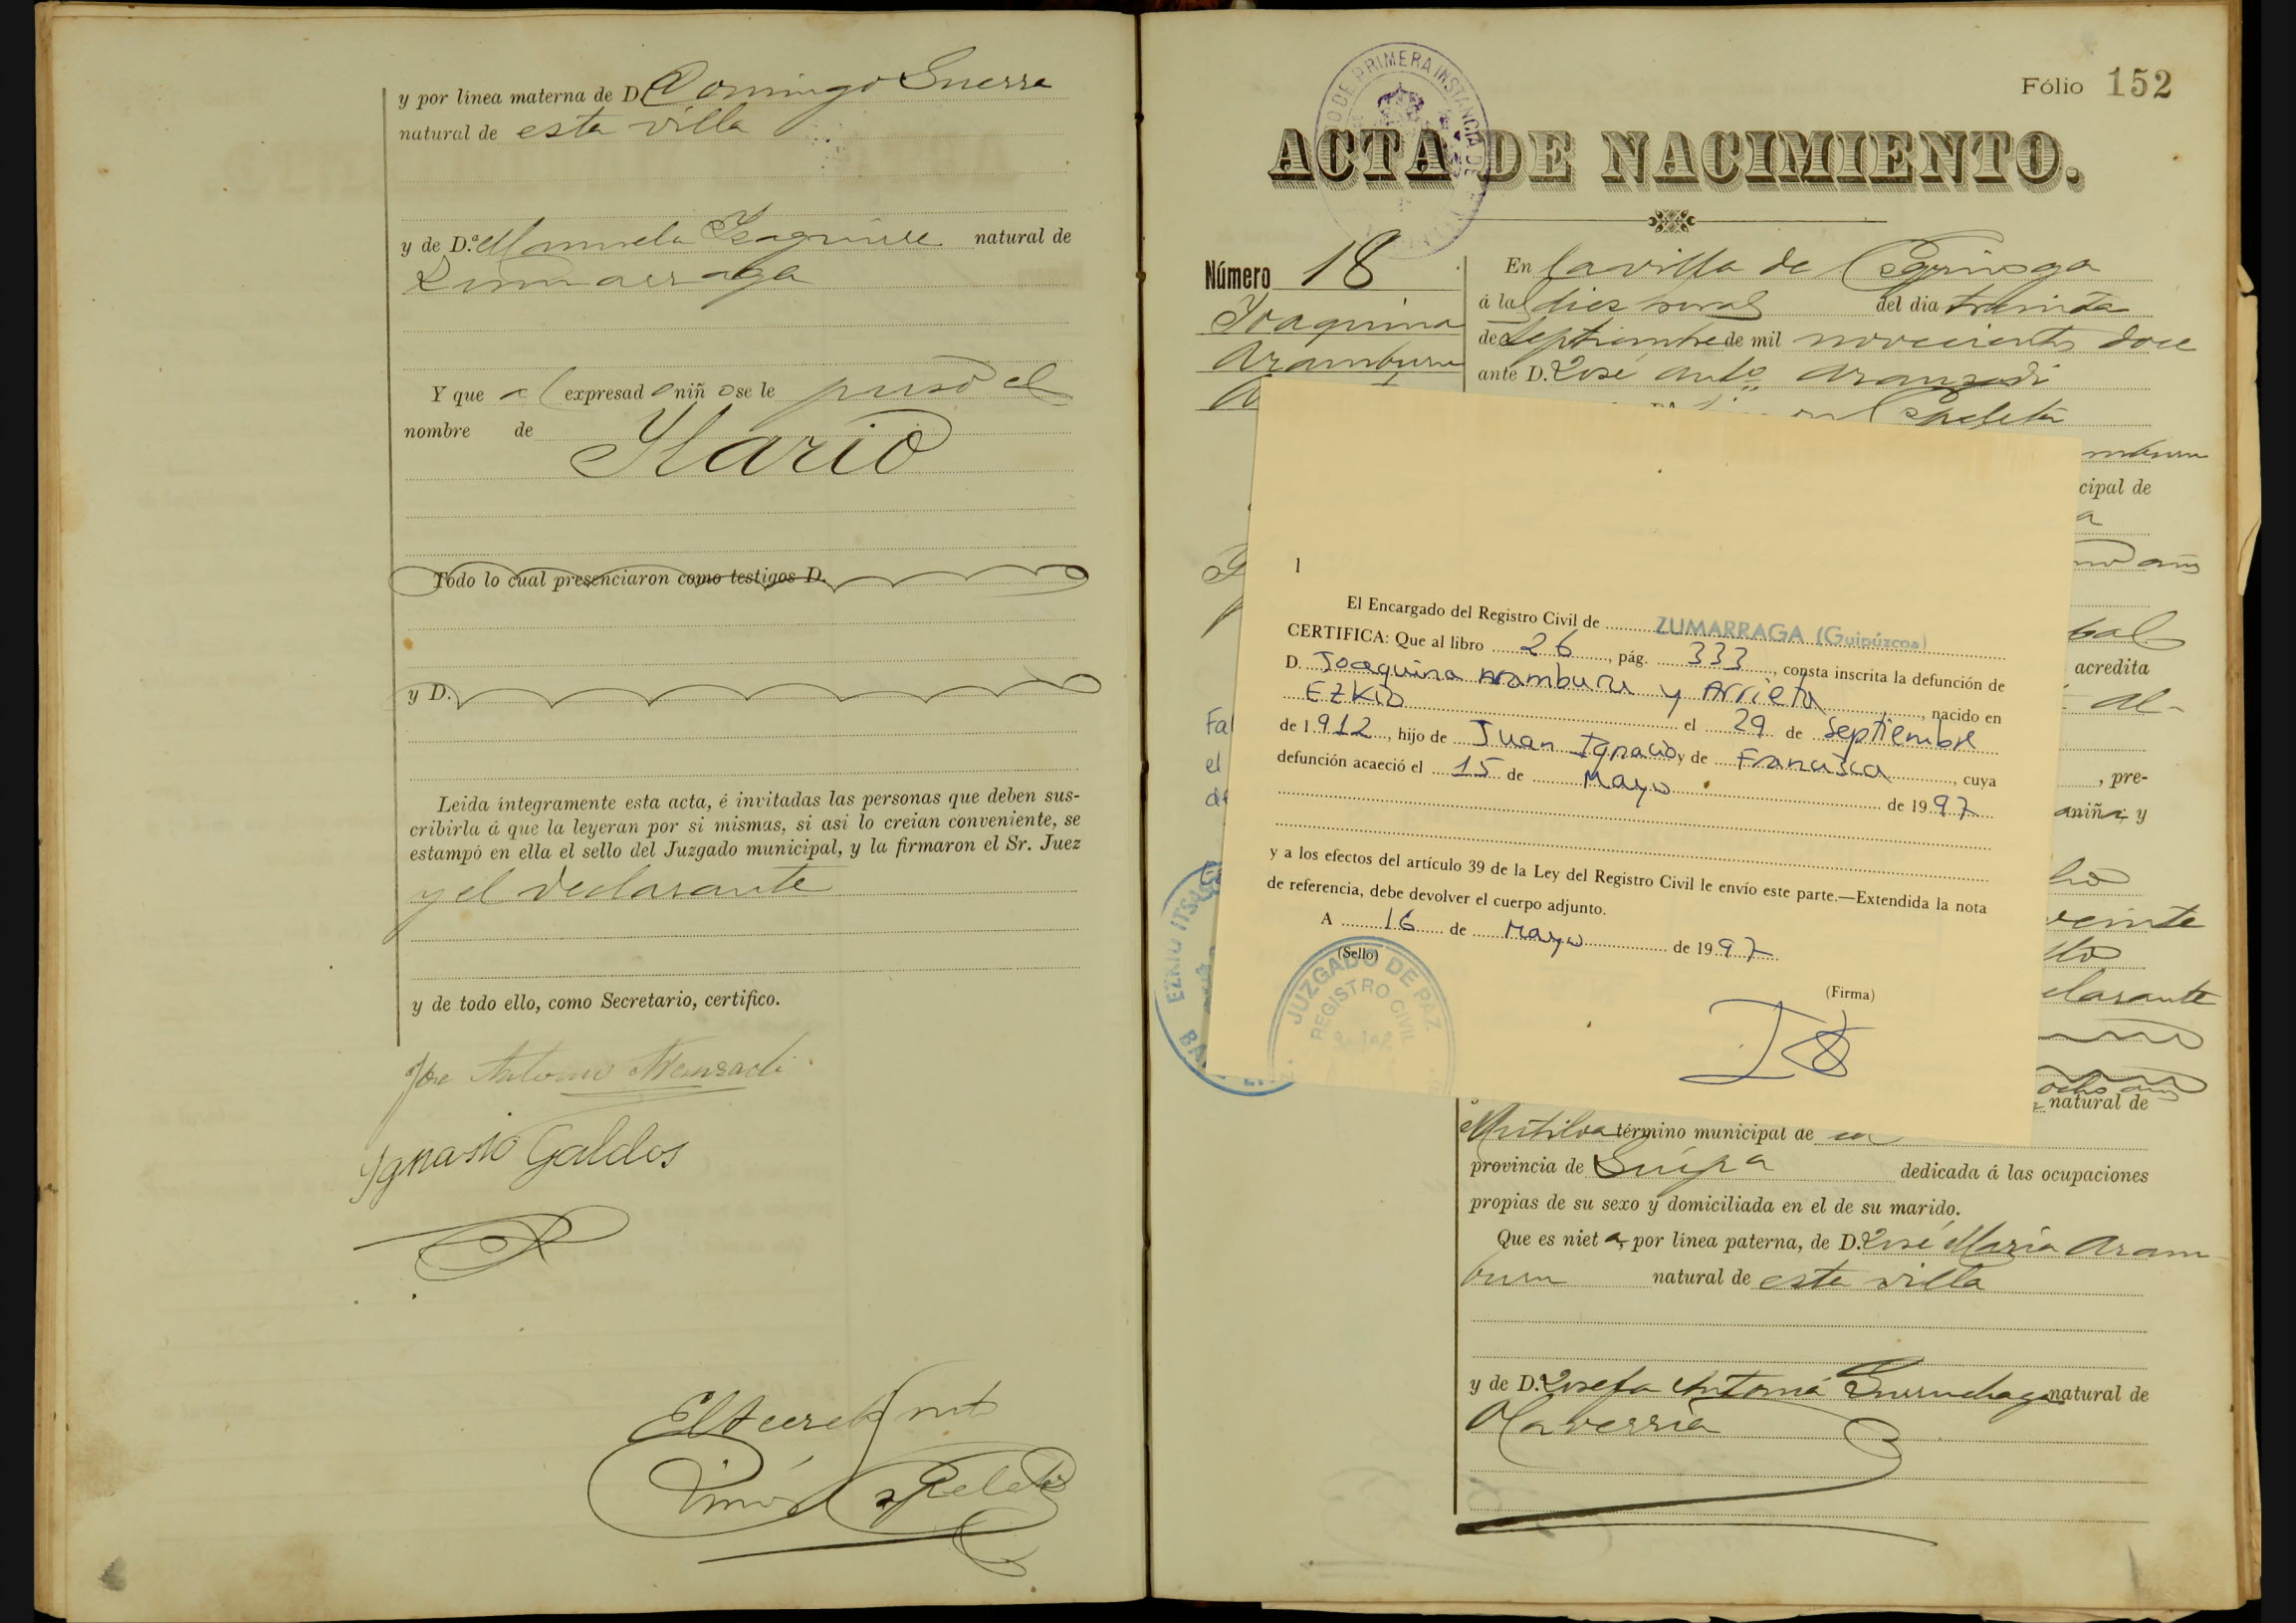 y por línea materna de D. Domingo Guerra
natural de esta villa
y de D.ª Manuela Izaguirre natural de
Zumarraga
Y que al expresado niño se le puso el
nombre de
Ilario
Todo lo cual presenciaron como testigos D.
y D.
Leida íntegramente esta acta, é invitadas las personas que deben sus-
cribirla á que la leyeran por si mismas, si asi lo creian conveniente, se
estampó en ella el sello del Juzgado municipal, y la firmaron el Sr. Juez
y el declarante
y de todo ello, como Secretario, certifico.
Jose Antonio Aranzadi
Ignasio Galdos
Espeleta
Fólio 152
DE PRIMERA INSTANCIA DE
ACTA DE NACIMIENTO.
Número 18
Joaquina
Aramburu
En la villa de Ezquioga
á las diez horas del dia treinta
de Septiembre de mil novecientos doce
ante D. José Antº Aranzadi
Espeleta
mburu
cipal de
a
bal
acredita
al-
, pre-
a niña; y
veinte
clarante
ocho
natural de
Fal
el
de
EZKIO ITS
1
El Encargado del Registro Civil de ZUMARRAGA (Guipúzcoa)
CERTIFICA: Que al libro 26, pág. 333, consta inscrita la defunción de
D. Joaquina Aramburu y Arrieta, nacido en
EZKIO el 29 de Septiembre
de 1912, hijo de Juan Ignacio y de Francisca, cuya
defunción acaeció el 15 de Mayo de 1997
y a los efectos del artículo 39 de la Ley del Registro Civil le envío este parte.—Extendida la nota
de referencia, debe devolver el cuerpo adjunto.
A 16 de Mayo de 1997
(Sello)
JUZGADO DE PAZ
REGISTRO CIVIL
(Firma)
Mutiloa término municipal de id
provincia de Guipª dedicada á las ocupaciones
propias de su sexo y domiciliada en el de su marido.
Que es nieta, por línea paterna, de D. José María Aram
buru natural de esta villa
y de D. Josefa Antonia Gurruchaga natural de
Olaverria